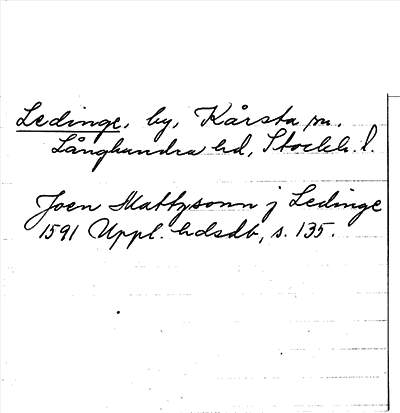 Ledinge, by, Kårsta sn.
Långhundra hd, Stockh. l.
Joen Mattzsonn j Ledinge
1591 Uppl. hdsdb, s. 135.